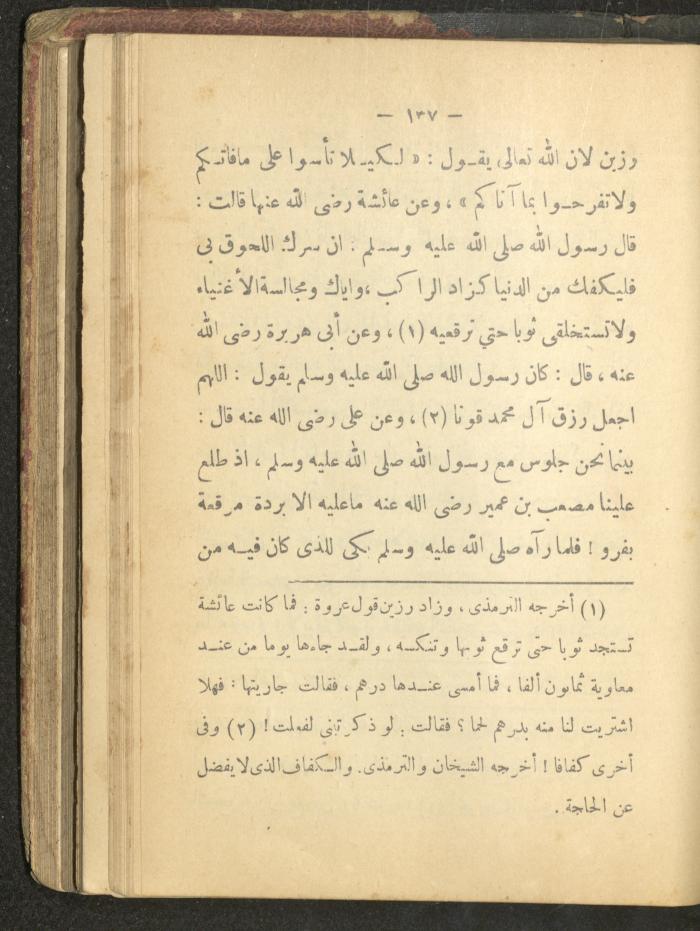 — ١٣٧ —
رزين لان الله تعالى يقول : « لكيلا تأسوا على مافاتكم
ولا تفرحوا بما آتاكم » ، وعن عائشة رضى الله عنها قالت :
قال رسول الله صلى الله عليه وسلم : ان سرك اللحوق بى
فليكفك من الدنيا كزاد الراكب ، واياك ومجالسة الأغنياء
ولا تستخلقى ثوبا حتي ترقعيه (١) ، وعن أبى هريرة رضى الله
عنه ، قال : كان رسول الله صلى الله عليه وسلم يقول : اللهم
اجعل رزق آل محمد قوتا (٢) ، وعن على رضى الله عنه قال :
بينما نحن جلوس مع رسول الله صلى الله عليه وسلم ، اذ طلع
علينا مصعب بن عمير رضى الله عنه ماعليه الا بردة مرقعة
بفرو ! فلما رآه صلى الله عليه وسلم بكى للذى كان فيه من
(١) أخرجه الترمذى ، وزاد رزين قول عروة : فما كانت عائشة
تستجد ثوبا حتى ترقع ثوبها وتنكسه ، ولقد جاءها يوما من عند
معاوية ثمانون ألفا ، فما أمسى عندها درهم ، فقالت جاريتها : فهلا
اشتريت لنا منه بدرهم لحما ؟ فقالت : لو ذكرتنى لفعلت ! (٢) وفى
أخرى كفافا ! أخرجه الشيخان والترمذى . والكفاف الذى لا يفضل
عن الحاجة .